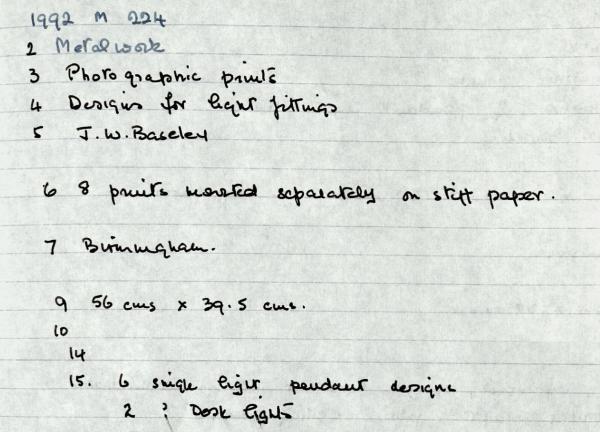 1992 M 224
2 Metalwork
3 Photographic prints
4 Designs for light fittings
5 J.W. Baseley
6 8 prints mounted separately on stiff paper.
7 Birmingham.
9 56 cms x 39.5 cms.
10
14
15. 6 single light pendant designs
2 ? Desk lights